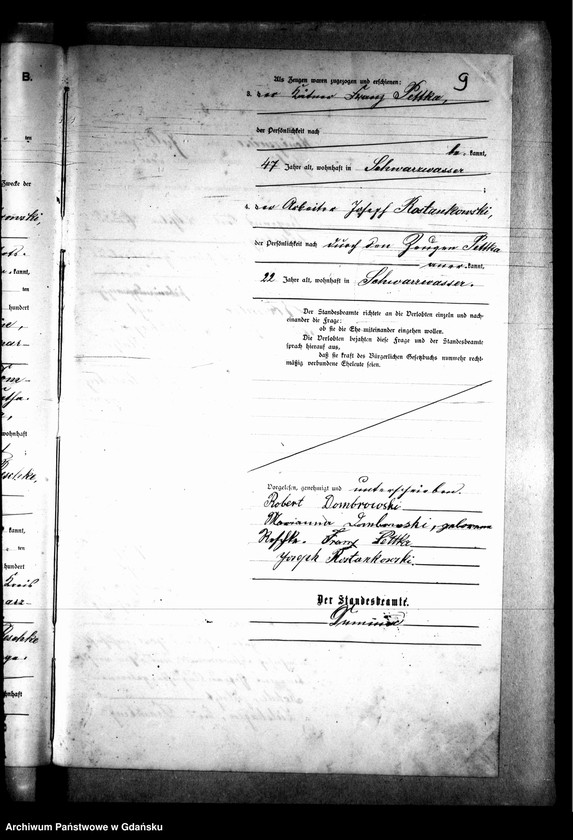 B.
9
Als Zeugen waren zugezogen und erschienen:
3. der Kätner Franz Pettka,
der Persönlichkeit nach
be kannt,
47 Jahre alt, wohnhaft in Schwarzwasser
;
4. der Arbeiter Joseph Rostankowski,
der Persönlichkeit nach durch den Zeugen Pettka
aner kannt,
22 Jahre alt, wohnhaft in Schwarzwasser.
Der Standesbeamte richtete an die Verlobten einzeln und nach-
einander die Frage:
ob sie die Ehe miteinander eingehen wollen.
Die Verlobten bejahten diese Frage und der Standesbeamte
sprach hierauf aus,
daß sie kraft des Bürgerlichen Gesetzbuchs nunmehr recht-
mäßig verbundene Eheleute seien.
Vorgelesen, genehmigt und unterschrieben.
Robert Dombrowski
Marianna Dombrowski, geborene
Reschke. Franz Pettka
Joseph Rostankowski.
Der Standesbeamte.
ten
Zwecke der
kannt,
ten
hundert
wohnhaft
kannt,
ten
hundert
Kreis
wohnhaft
Archiwum Państwowe w Gdańsku